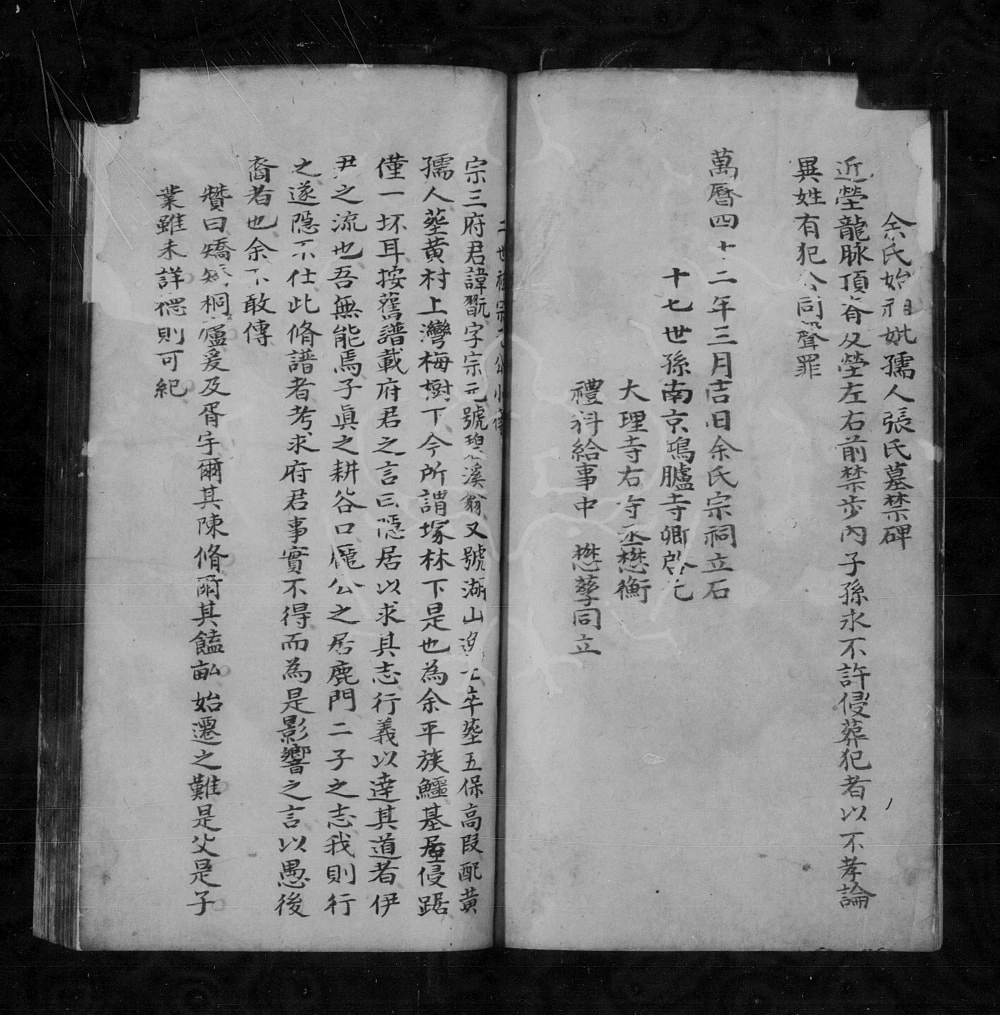 余氏始祖妣孺人張氏墓禁碑
近塋龍脉頂脊及塋左右前禁步內子孫永不許侵葬犯者以不孝論
異姓有犯公同聲罪
萬曆四十二年三月吉日余氏宗祠立石
十七世孫南京鴻臚寺卿啟元
大理寺右寺丞懋衡
禮科給事中 懋孳同立
二世祖宗
宗三府君諱翫字宗元號碧溪翁又號湖山 卒塟五保高段配黃
孺人塟黃村上灣梅樹下今所謂塚林下是也為余平族鱷基屋侵踞
僅一坏耳按舊譜載府君之言曰隱居以求其志行義以達其道者伊
尹之流也吾無能焉子真之耕谷口龐公之居鹿門二子之志我則行
之遂隱不仕此脩譜者考求府君事實不得而為是影響之言以愚後
裔者也余不敢傳
贊曰矯矯桐廬爰及胥宇爾其陳脩爾其饁畝始遷之難是父是子
業雖未詳德則可紀